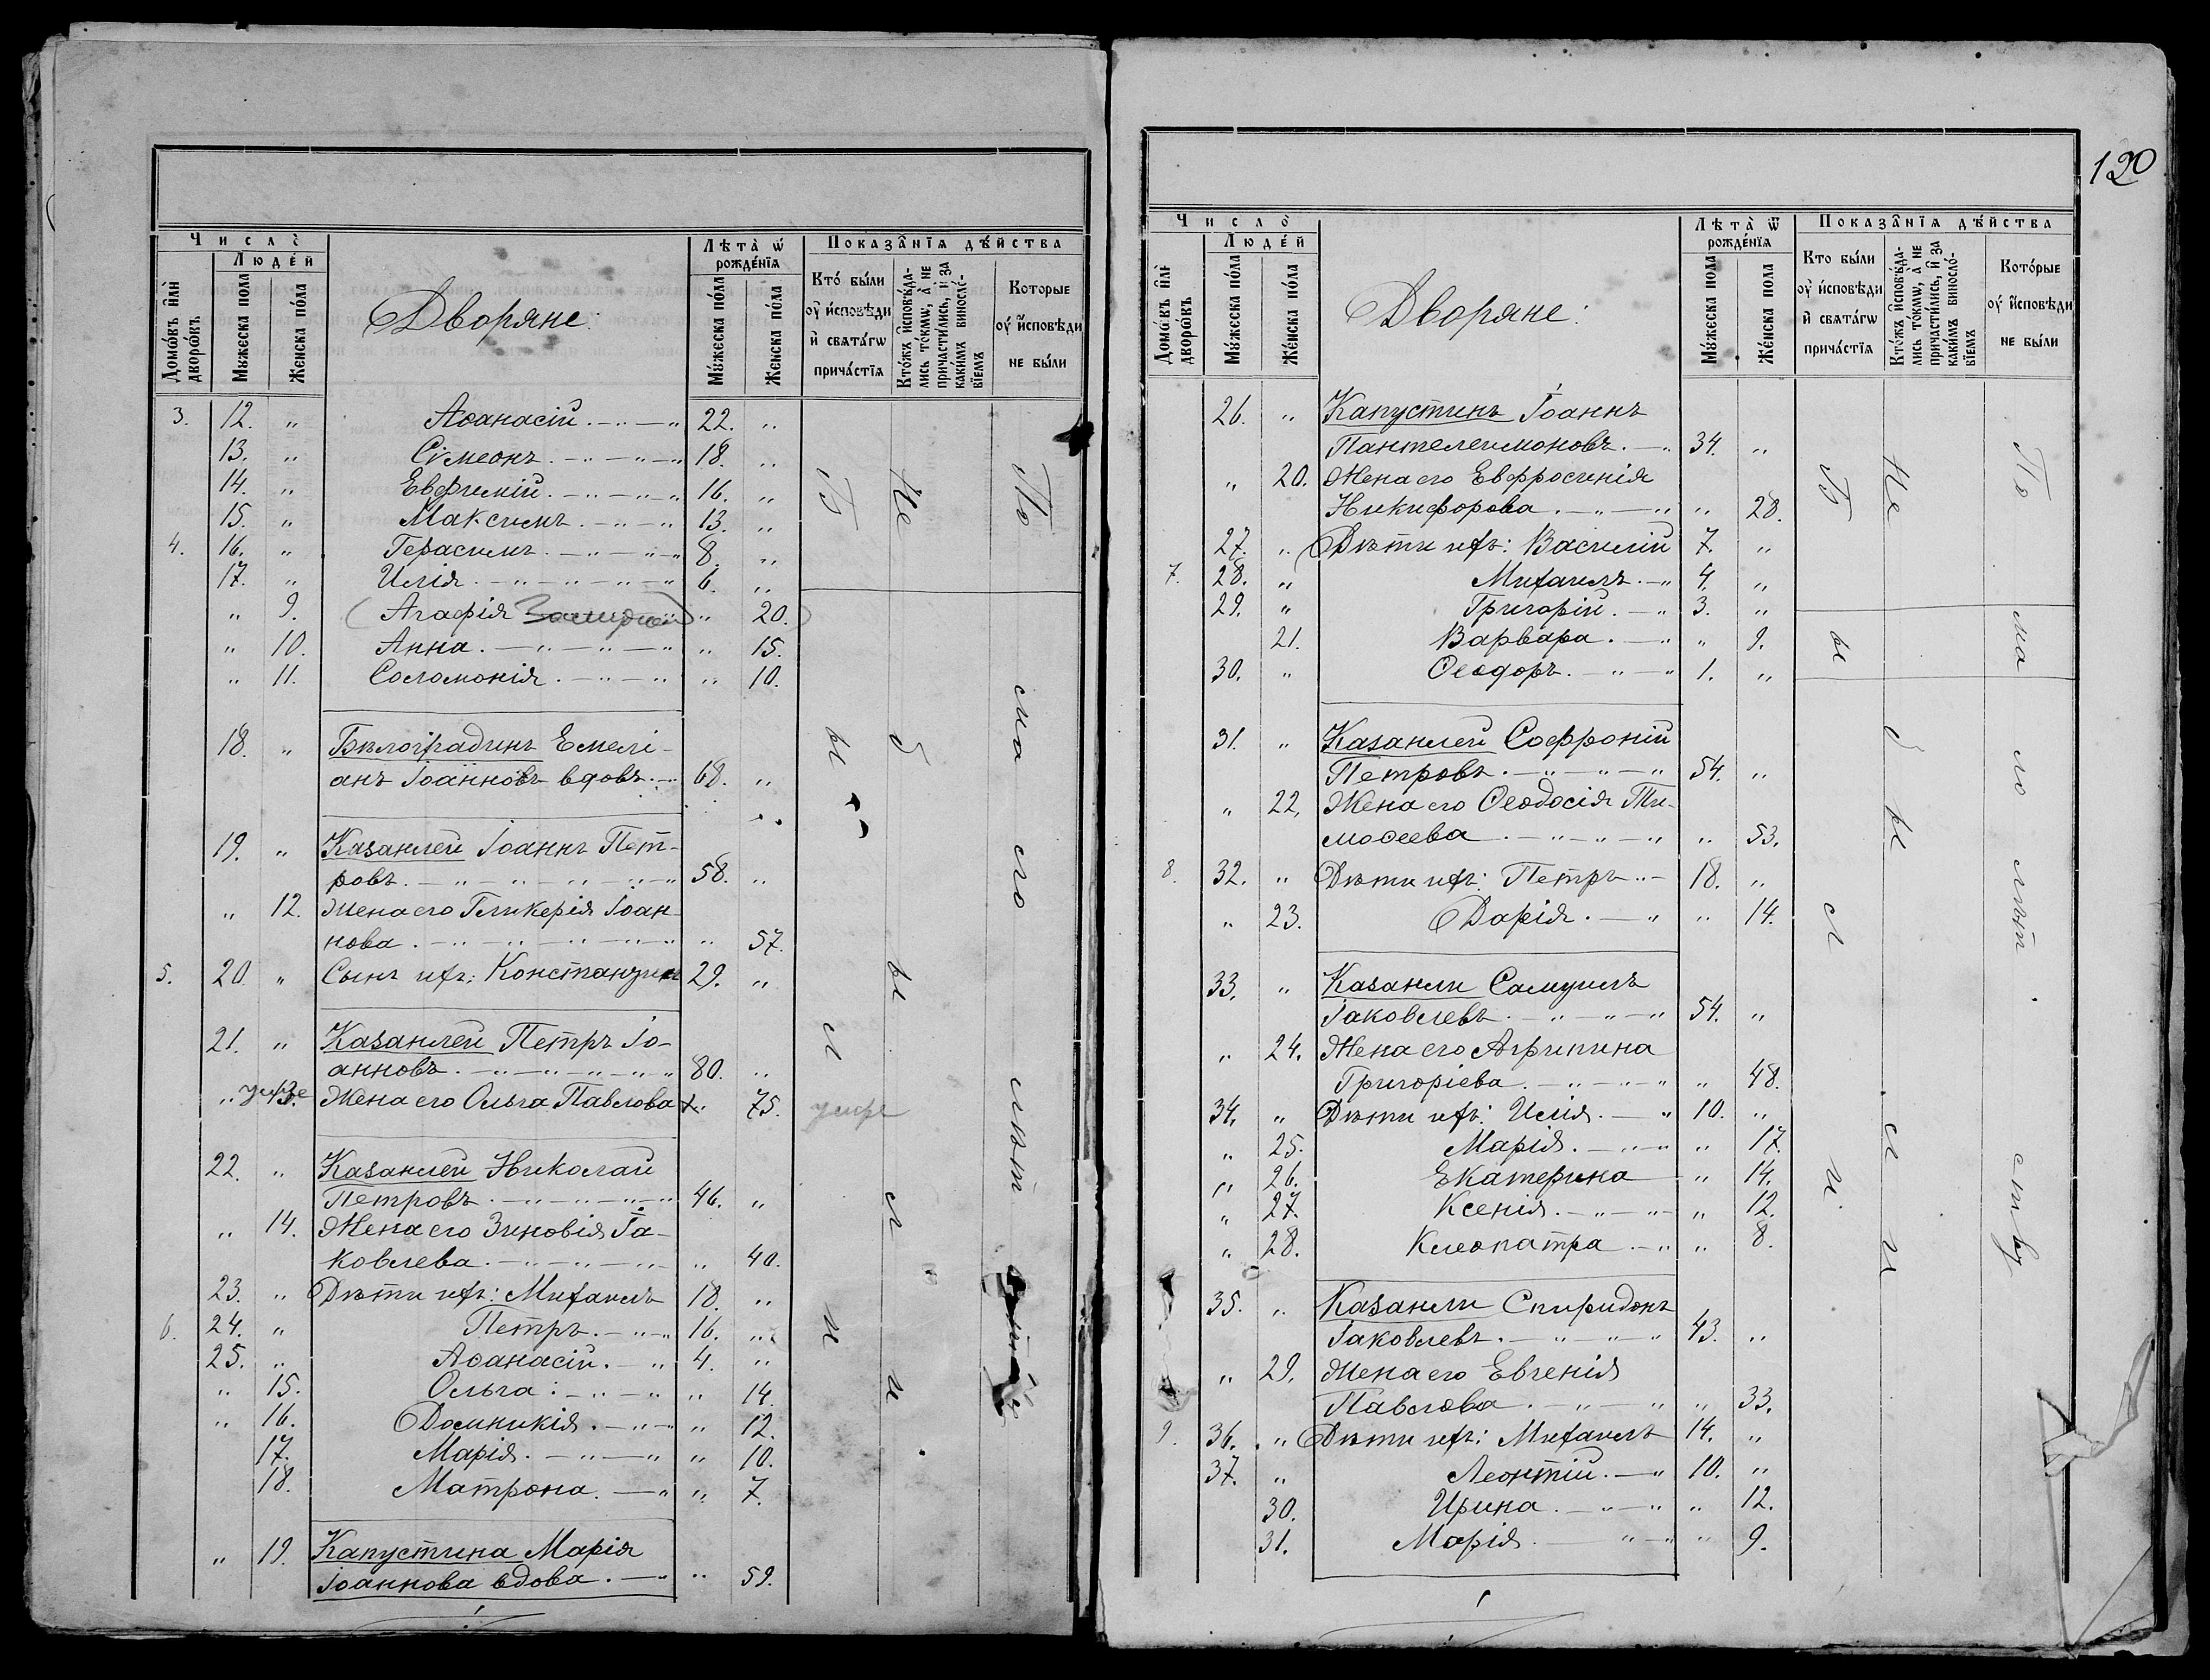 Число̀
Домо́въ и҆лѝ дворо́въ
Людéй
Мꙋ́жеска по́ла
Же́нска по́ла
Дворяне:
Лѣта̀ ѿ рожде́нїѧ
Мꙋ́жеска по́ла
Же́нска по́ла
Показа̑нїѧ дѣ́йства
Кто̀ бы́ли оу҆ и҆сповѣди и҆ свѧта́гѡ прича́стїѧ
Кто́жъ и҆сповѣ́дались то́кмѡ, а҆ не причасти́лись, и҆ за каки́мъ винословїемъ
Кото́рые оу҆ и҆сповѣди не бы́ли
3. 12. " Аѳанасій. — " — " 22. "
13. " Сѵмеонъ. — " — " — " 18. "
14. " Евфимій. — " — " — " 16. "
15. " Максимъ. — " — " 13. "
4. 16. " Герасимъ. — " — " — " 8. "
17. " Илія. — " — " — " — " 6. "
" 9. (Агафія " 20.)
" 10. Анна. — " — " — " " 15.
" 11. Соломонія. — " — " " 10.
18. " Бѣлоградинъ Емелі-
анъ Іоанновъ вдовъ. — " 68. "
19. " Казанлей Іоаннъ Пет-
ровъ. — " — " — " — " — " 58. "
" 12. Жена его Гликерія Іоан-
нова. — " — " — " — " — " " 57.
5. 20 " Сынъ ихъ: Константинъ 29. "
21. " Казанлей Петръ Іо-
анновъ. — " — " — " — " 80. "
" 13. Жена его Ольга Павлова " 75. умре
22. " Казанлей Николай
Петровъ. — " — " — " — " 46. "
" 14. Жена его Зиновія Іа-
ковлева. — " — " — " — " " 40.
23. " Дѣти ихъ: Михаилъ 18. "
6. 24. " Петръ. — " — " 16. "
25. " Аѳанасій. — " 4. "
" 15. Ольга: — " — " " 14.
" 16. Домникія. — " — " " 12.
17. Марія. — " — " " 10.
18. Матрона. — " " 7.
" 19. Капустина Марія
Іоаннова вдова. — " " 59.
Бы ли
Не бы ли
По ма ло лѣт
120
Число̀
Домо́въ и҆лѝ дворо́въ
Людéй
Мꙋ́жеска по́ла
Же́нска по́ла
Дворяне:
Лѣта̀ ѿ рожде́нїѧ
Мꙋ́жеска пола
Же́нска пола
Показа̑нїѧ дѣ́йства
Кто бы́ли оу҆ и҆сповѣди и҆ свѧта́гѡ прича́стїѧ
Кто́жъ и҆сповѣ́дались то́кмѡ, а҆ не причасти́лись, и҆ за каки́мъ винословїемъ
Кото́рые оу҆ и҆сповѣди не бы́ли
26. " Капустинъ Іоаннъ
Пантелеимоновъ. — " 34. "
" 20. Жена его Евфросинія
Никифорова. — " — " " 28.
27. " Дѣти ихъ: Василій 7. "
7. 28. " Михаилъ. — " 4. "
29. " Григорій. — " 3. "
21. Варвара. — " " 9.
30. " Ѳеодоръ. — " — " 1. "
31. " Казанлей Софроній
Петровъ. — " — " — " 54. "
" 22. Жена его Ѳеодосія Ти-
моѳеева — " — " — " " 53.
8. 32. " Дѣти ихъ: Петръ " — 18. "
" 23. Дарія. — " " 14.
33. " Казанли Самуилъ
Іаковлевъ. — " — " — " 54. "
" 24. Жена его Агрипина
Григоріева. — " — " — " " 48.
34. " Дѣти ихъ: Илія. — " 10. "
" 25. Марія. — " — " " 17.
" 26. Екатерина " 14.
" 27. Ксенія. — " — " " 12.
" 28. Клеопатра. — " " 8.
35. " Казанли Спиридонъ
Іаковлевъ. — " — " — " 43. "
" 29. Жена его Евгенія
Павлова. — " — " " 33.
9. 36. " Дѣти ихъ: Михаилъ 14. "
37. " Леонтій. — " 10. "
30. Ирина. — " — " " 12.
31. Марія. — " — " " 9.
Бы ли.
Не бы ли
По ма ло лѣт ству